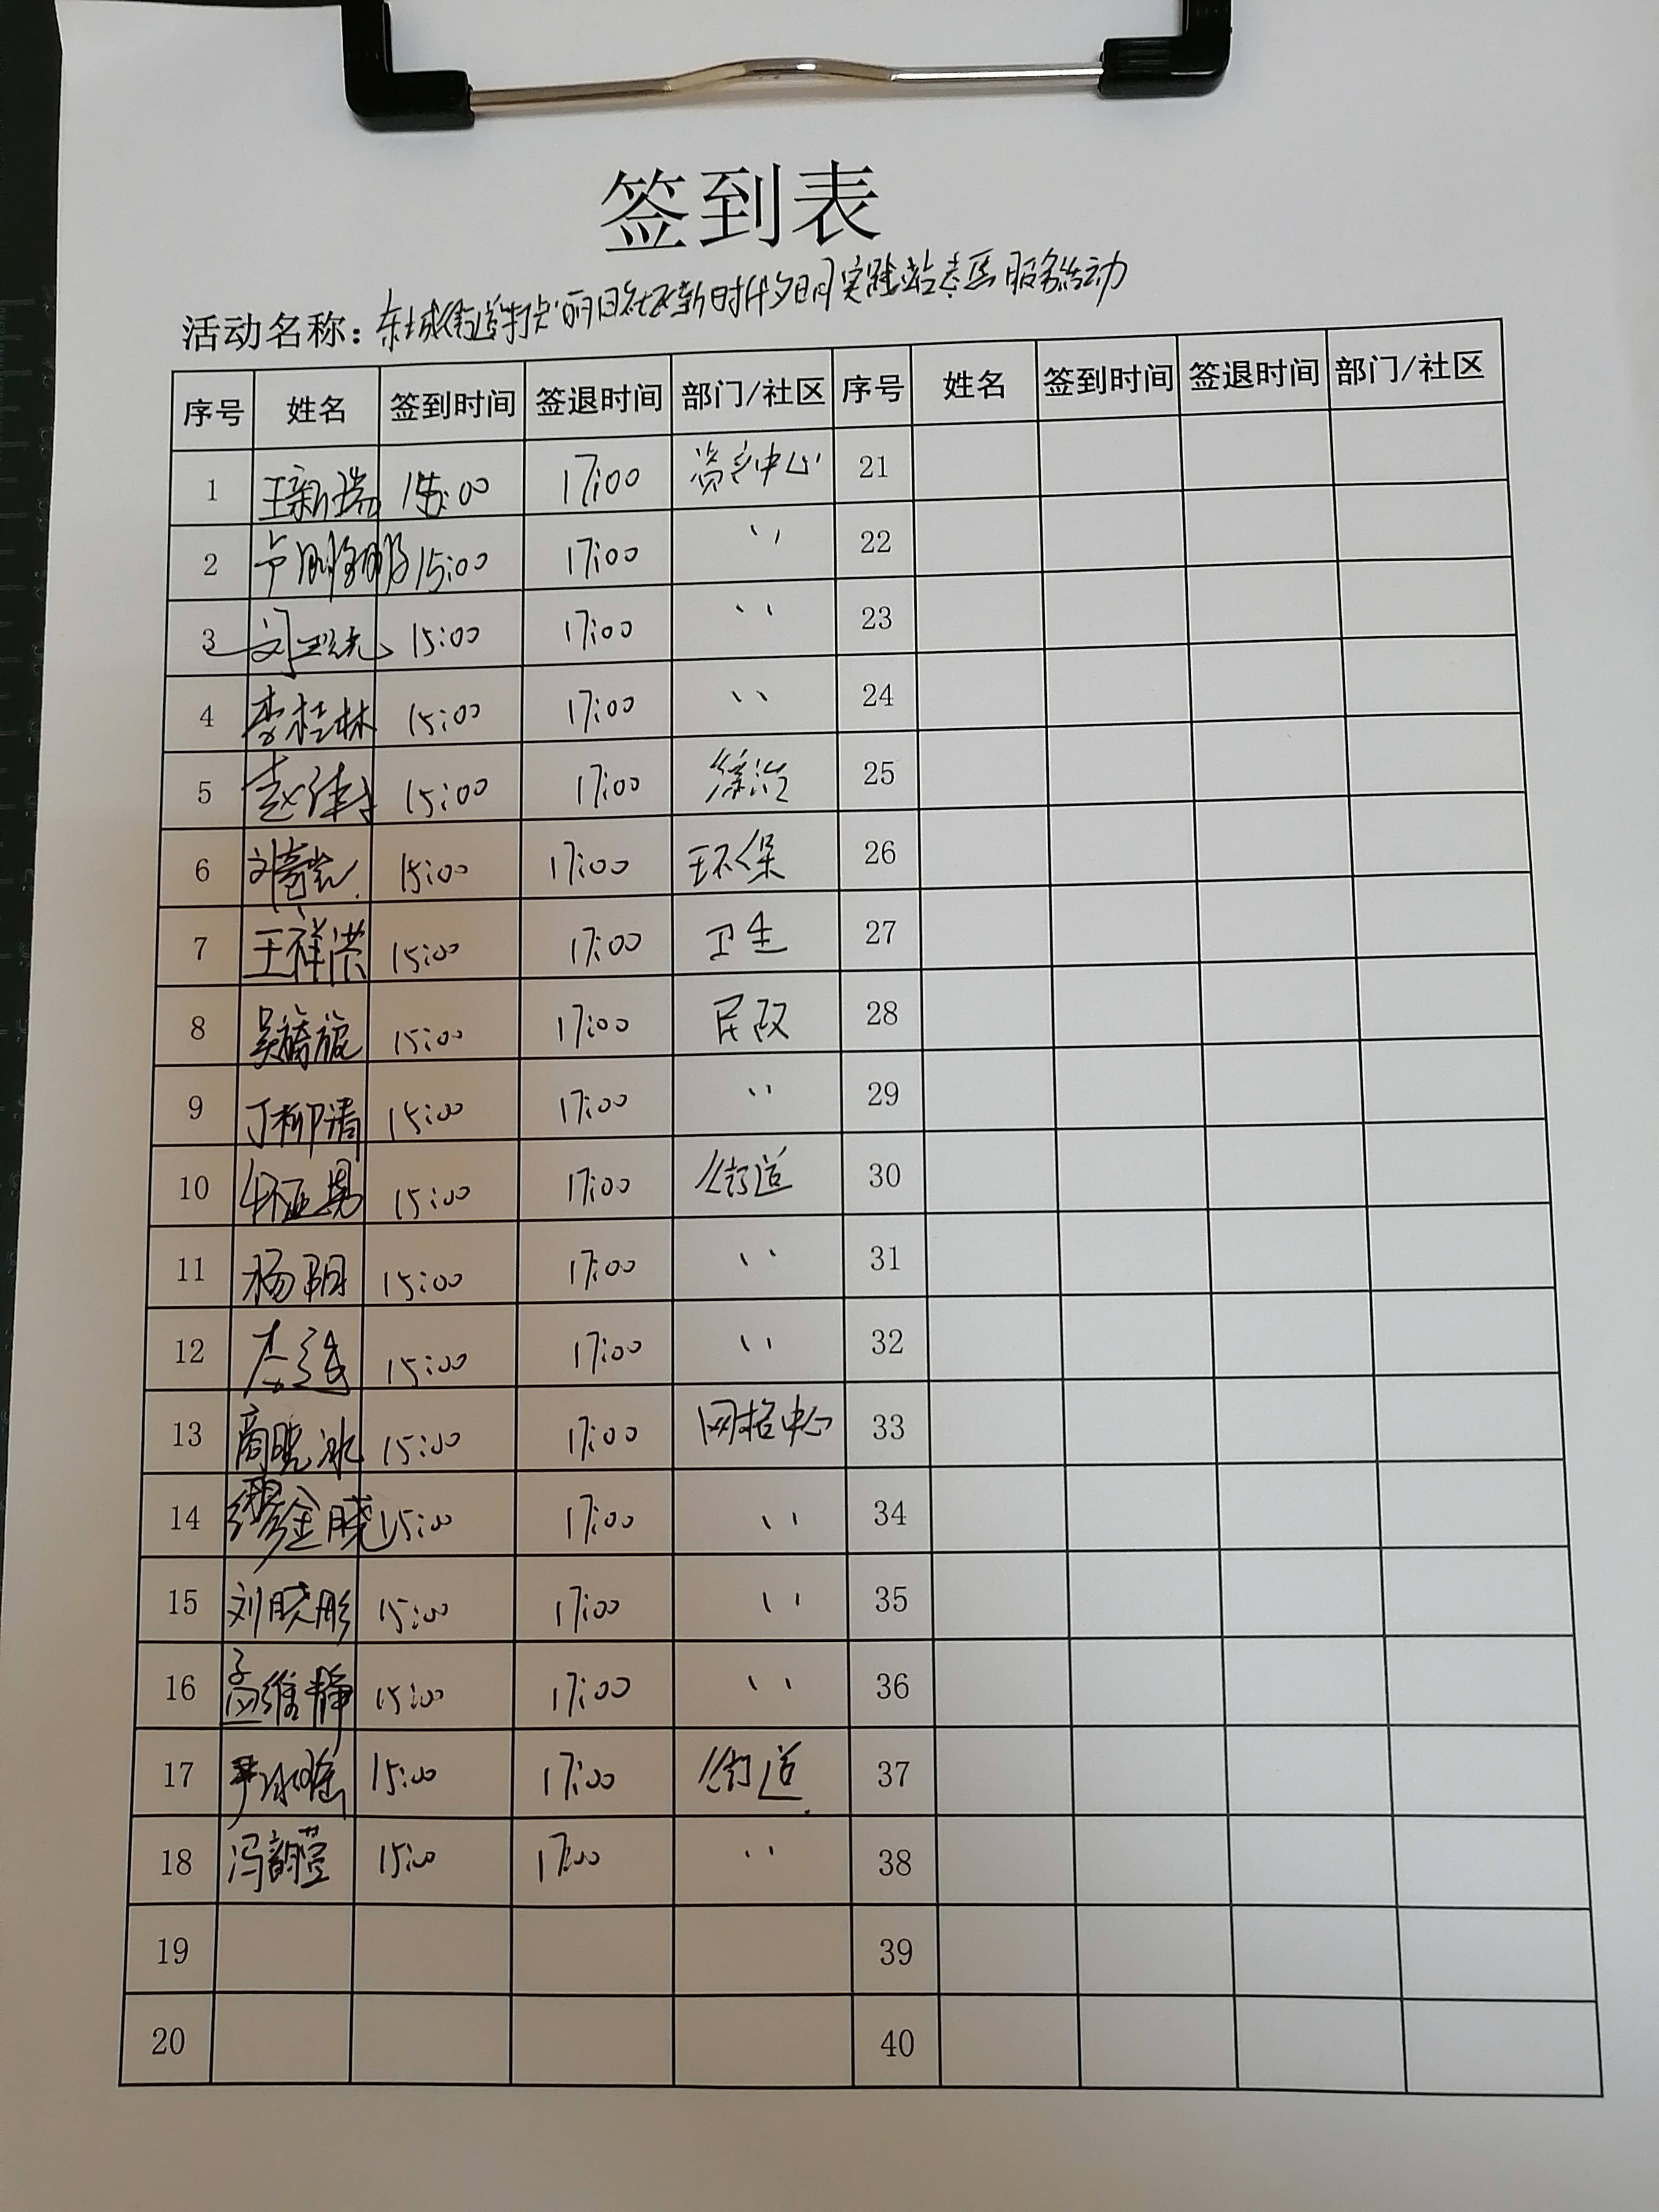 签到表
活动名称：东城街道丽日社区新时代文明实践站志愿服务活动
序号 姓名 签到时间 签退时间 部门/社区 序号 姓名 签到时间 签退时间 部门/社区
1 王新瑞 15:00 17:00 资产中心 21
2 15:00 17:00 〃 22
3 15:00 17:00 〃 23
4 李桂林 15:00 17:00 〃 24
5 15:00 17:00 综治 25
6 15:00 17:00 环保 26
7 王祥洪 15:00 17:00 卫生 27
8 15:00 17:00 民政 28
9 丁柳清 15:00 17:00 〃 29
10 15:00 17:00 街道 30
11 杨阳 15:00 17:00 〃 31
12 15:00 17:00 〃 32
13 商晓冰 15:00 17:00 网格中心 33
14 缪金晓 15:00 17:00 〃 34
15 刘晓彤 15:00 17:00 〃 35
16 孟维静 15:00 17:00 〃 36
17 15:00 17:00 街道 37
18 冯韵萱 15:00 17:00 〃 38
19 39
20 40